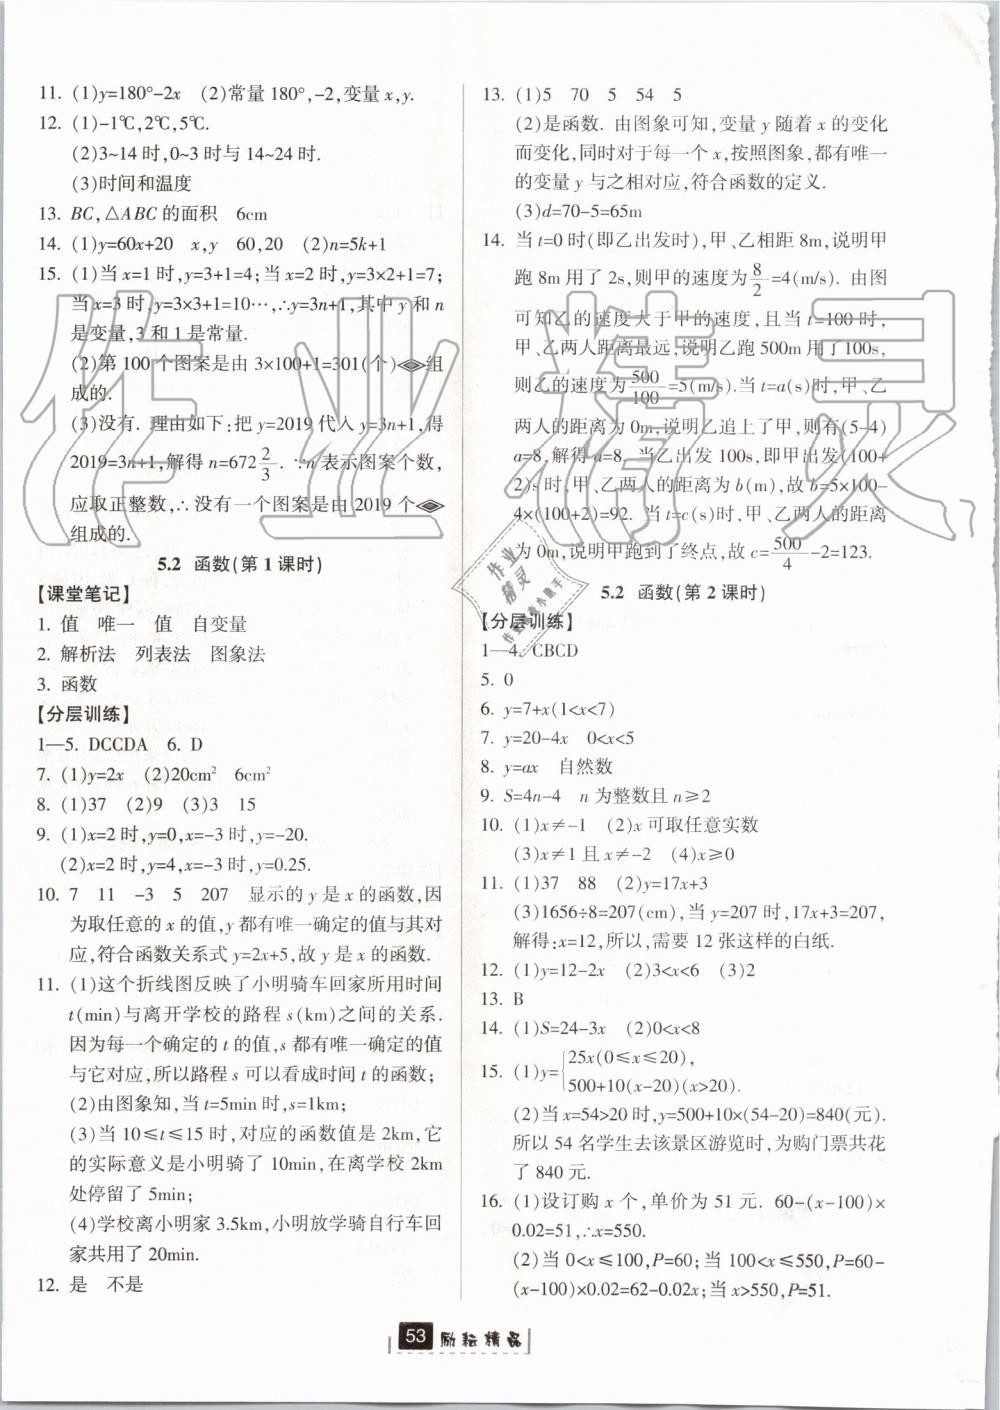 11. (1)y=180°-2x (2)常量 180°,-2,变量 x,y.
12. (1)-1℃,2℃,5℃.
(2)3~14 时,0~3 时与 14~24 时.
(3)时间和温度
13. BC,△ABC 的面积 6cm
14. (1)y=60x+20 x,y 60,20 (2)n=5k+1
15. (1)当 x=1 时,y=3+1=4;当 x=2 时,y=3×2+1=7;
当 x=3 时,y=3×3+1=10…,∴y=3n+1,其中 y 和 n
是变量,3 和 1 是常量.
(2)第 100 个图案是由 3×100+1=301(个)组
成的.
(3)没有. 理由如下:把 y=2019 代入 y=3n+1,得
2019=3n+1,解得 n=672 2/3. ∵n 表示图案个数,
应取正整数,∴没有一个图案是由 2019 个
组成的.
5.2 函数(第 1 课时)
【课堂笔记】
1. 值 唯一 值 自变量
2. 解析法 列表法 图象法
3. 函数
【分层训练】
1—5. DCCDA 6. D
7. (1)y=2x (2)20cm² 6cm²
8. (1)37 (2)9 (3)3 15
9. (1)x=2 时,y=0,x=-3 时,y=-20.
(2)x=2 时,y=4,x=-3 时,y=0.25.
10. 7 11 -3 5 207 显示的 y 是 x 的函数,因
为取任意的 x 的值,y 都有唯一确定的值与其对
应,符合函数关系式 y=2x+5,故 y 是 x 的函数.
11. (1)这个折线图反映了小明骑车回家所用时间
t(min)与离开学校的路程 s(km)之间的关系.
因为每一个确定的 t 的值,s 都有唯一确定的值
与它对应,所以路程 s 可以看成时间 t 的函数;
(2)由图象知,当 t=5min 时,s=1km;
(3)当 10≤t≤15 时,对应的函数值是 2km,它
的实际意义是小明骑了 10min,在离学校 2km
处停留了 5min;
(4)学校离小明家 3.5km,小明放学骑自行车回
家共用了 20min.
12. 是 不是
13. (1)5 70 5 54 5
(2)是函数. 由图象可知,变量 y 随着 x 的变化
而变化,同时对于每一个 x,按照图象,都有唯一
的变量 y 与之相对应,符合函数的定义.
(3)d=70-5=65m
14. 当 t=0 时(即乙出发时),甲、乙相距 8m,说明甲
跑 8m 用了 2s,则甲的速度为 8/2=4(m/s). 由图
可知乙的速度大于甲的速度,且当 t=100 时,
甲、乙两人距离最远,说明乙跑 500m 用了100s,
则乙的速度为 500/100=5(m/s).当 t=a(s)时,甲、乙
两人的距离为 0m,说明乙追上了甲,则有(5-4)
a=8,解得 a=8. 当乙出发 100s,即甲出发(100+
2)s 时,甲、乙两人的距离为 b(m),故 b=5×100-
4×(100+2)=92. 当 t=c(s)时,甲、乙两人的距离
为 0m,说明甲跑到了终点,故 c=500/4-2=123.
5.2 函数(第 2 课时)
【分层训练】
1—4. CBCD
5. 0
6. y=7+x(1<x<7)
7. y=20-4x 0<x<5
8. y=ax 自然数
9. S=4n-4 n 为整数且 n≥2
10. (1)x≠-1 (2)x 可取任意实数
(3)x≠1 且 x≠-2 (4)x≥0
11. (1)37 88 (2)y=17x+3
(3)1656÷8=207(cm),当 y=207 时,17x+3=207,
解得:x=12,所以,需要 12 张这样的白纸.
12. (1)y=12-2x (2)3<x<6 (3)2
13. B
14. (1)S=24-3x (2)0<x<8
15. (1)y={25x(0≤x≤20),
500+10(x-20)(x>20).
(2)当 x=54>20 时,y=500+10×(54-20)=840(元).
所以 54 名学生去该景区游览时,为购门票共花
了 840 元.
16. (1)设订购 x 个,单价为 51 元. 60-(x-100)×
0.02=51,∴x=550.
(2)当 0<x≤100,P=60;当 100<x≤550,P=60-
(x-100)×0.02=62-0.02x;当 x>550,P=51.
53 励耘精品
作业精灵
作业精灵